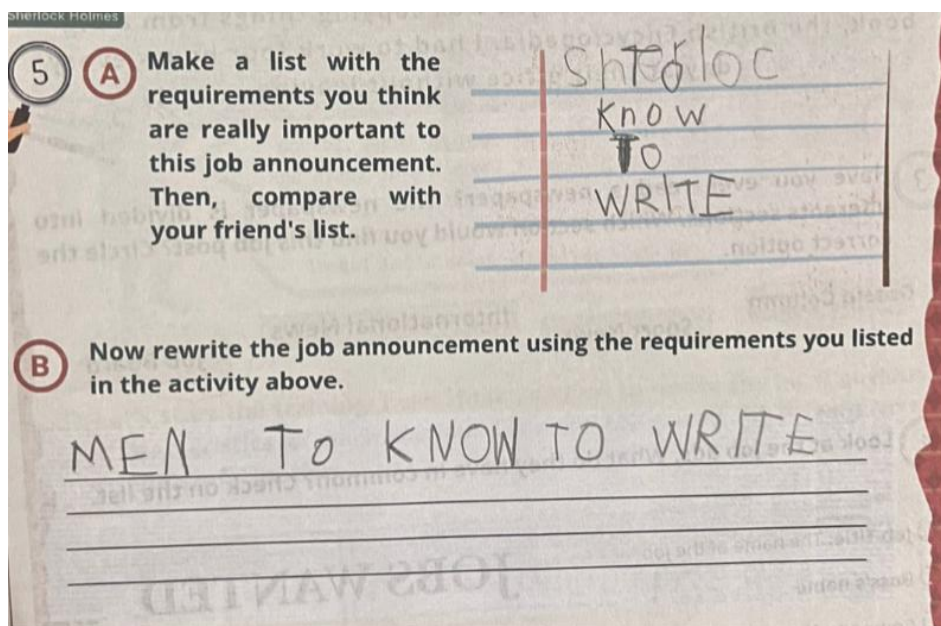 Sherlock Holmes
5 A Make a list with the
requirements you think
are really important to
this job announcement.
Then, compare with
your friend's list.
Know
TO
WRITE
B Now rewrite the job announcement using the requirements you listed
in the activity above.
MEN TO KNOW TO WRITE